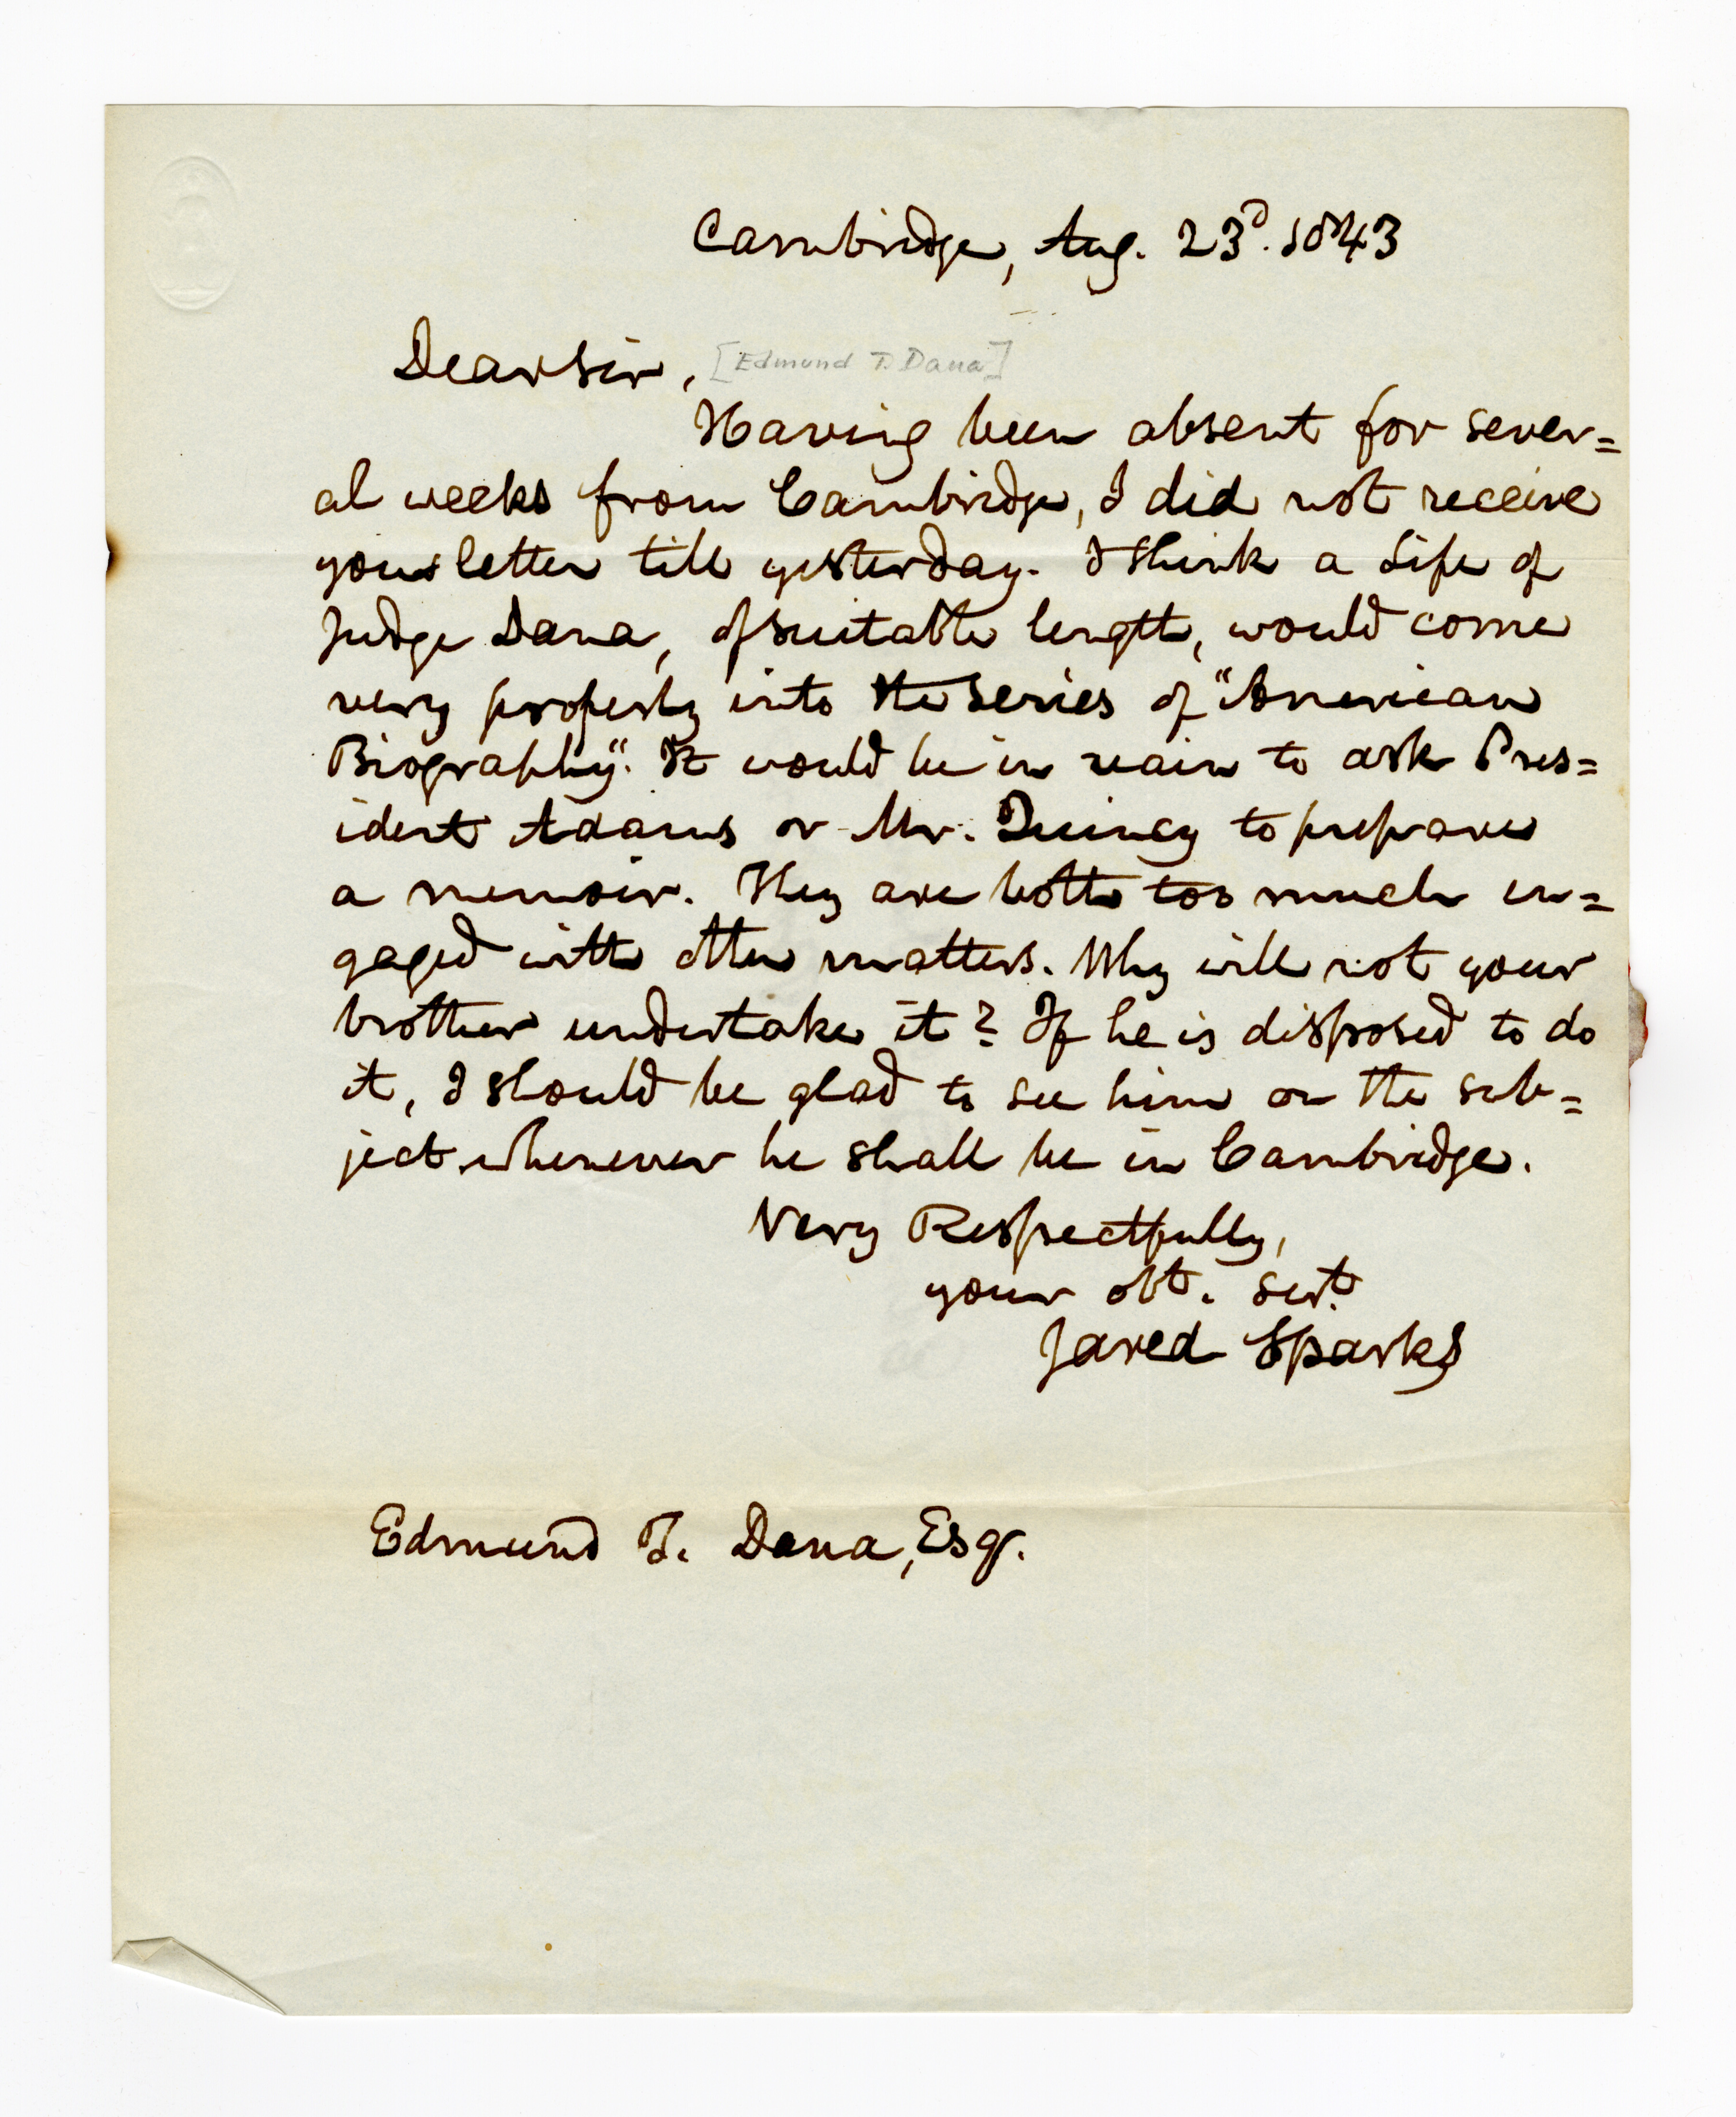 Cambridge, Aug. 23d. 1843
Dear Sir, [Edmund T. Dana]
Having been absent for sever=
al weeks from Cambridge, I did not receive
your letter till yesterday. I think a Life of
Judge Dana, of suitable length, would come
very properly into the series of "American
Biography". It would be in vain to ask Pres=
ident Adams or Mr. Quincy to prepare
a memoir. They are both too much en=
gaged with other matters. Why will not your
brother undertake it? If he is disposed to do
it, I should be glad to see him on the sub=
ject whenever he shall be in Cambridge.
Very Respectfully,
your obt. sert.
Jared Sparks
Edmund T. Dana, Esqr.